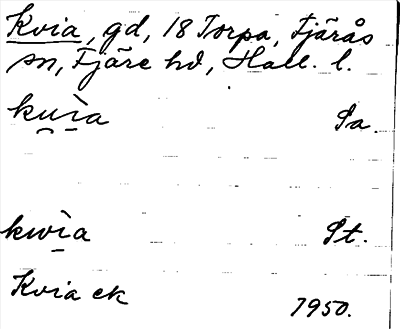 Kvia, gd, 18 Torpa, Fjärås
sn, Fjäre hd, Hall. l.
ku̯ìa Sa.
kwìa St.
Kvia ek 1950.